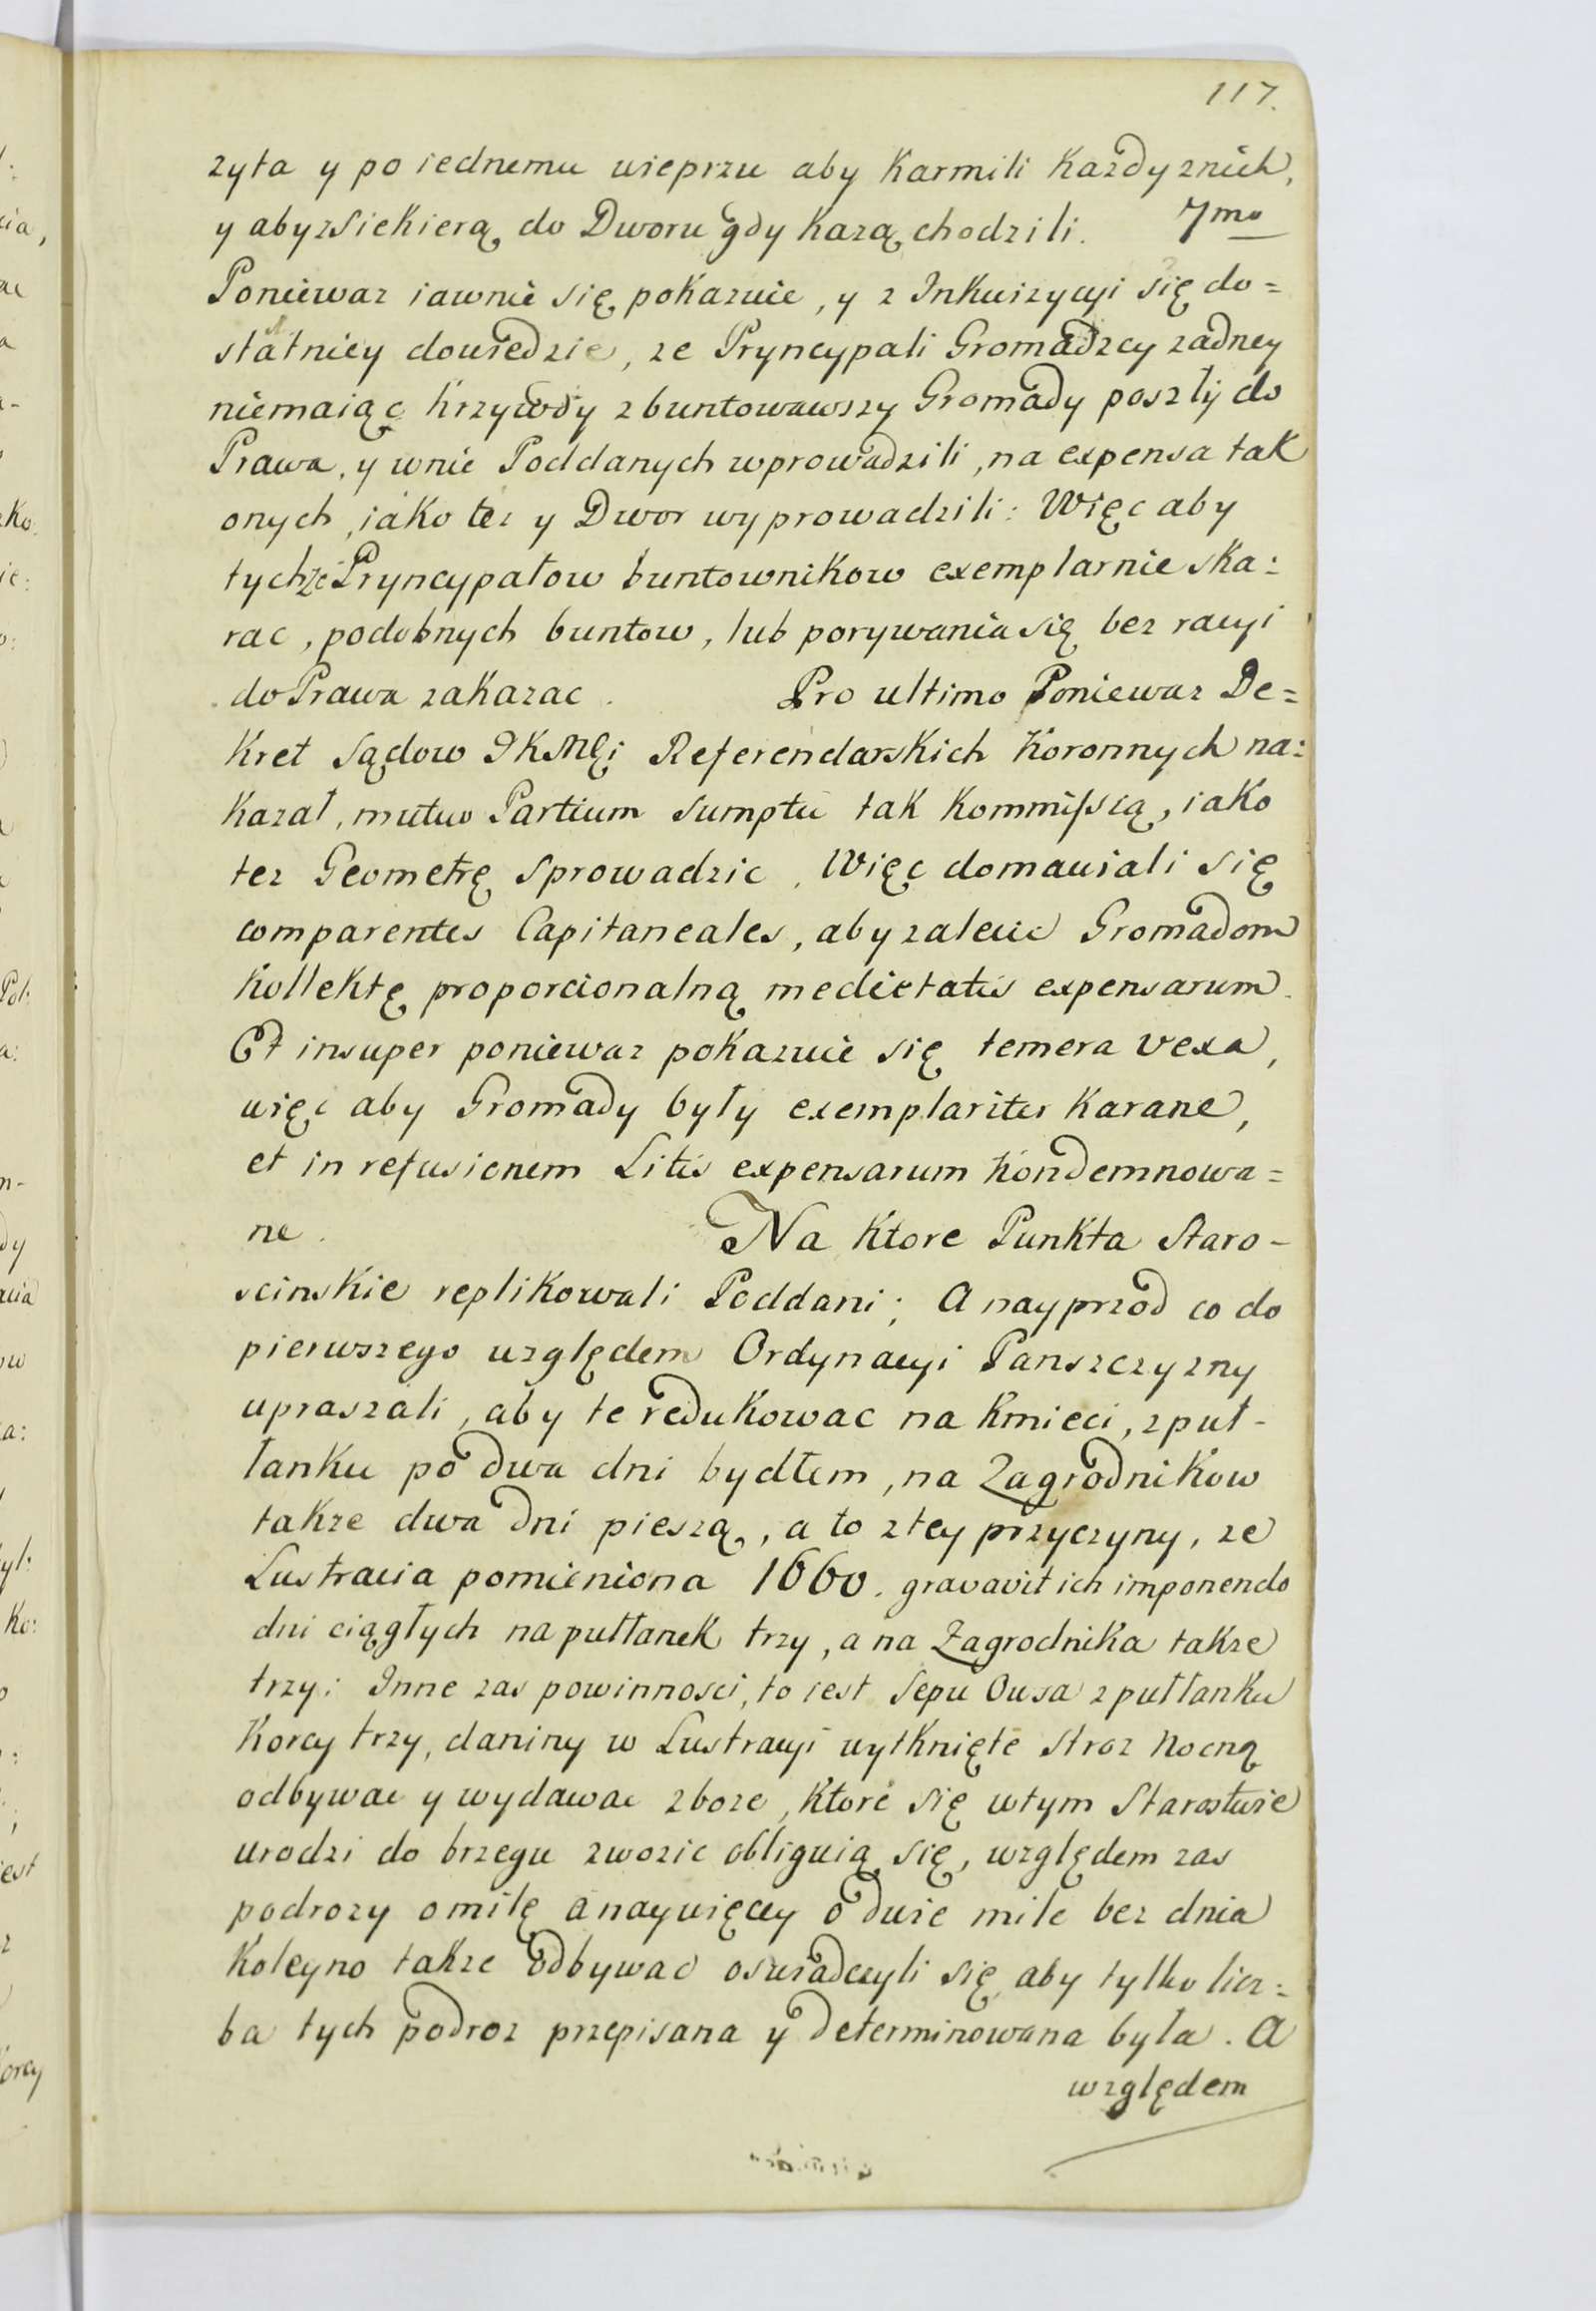 117.
zyta y po iednemu wieprzu aby Karmili Kazdy znich,
y aby zSiekierą do Dworu gdy Kazą chodzili. 7mo
Poniewaz iawnie się pokazuie, y z Inkwizycyi się do=
statniey dowiedzie, ze Pryncypali Gromadzcy zadney
niemaiąc Krzywdy zbuntowawszy Gromady poszły do
Prawa, y wnie Poddanych wprowadzili, na expensa tak
onych, iako tez y Dwor wyprowadzili: Więc aby
tychze Pryncypałow buntownikow exemplarnie ska:
rac, podobnych buntow, lub porywania się bez racyi
do Prawa zakazac. Pro ultimo Poniewaz De=
Kret Sądow JKMCi Referendarskich Koronnych na:
Kazał, mutuo Partium Sumptu tak Kommissią, iako
tez Geometrę Sprowadzic, Więc domawiali się
comparentes Capitaneales, aby zalecic Gromadom
Kollektę proporcionalną medietatis expensarum.
Et insuper poniewaz pokazuie się temera vexa,
więc aby Gromady były exemplariter Karane,
et in refusionem Litis expensarum Kondemnowa=
ne. Na Ktore Punkta Staro-
scinskie replikowali Poddani; A nayprzod co do
pierwszego względem Ordynacyi Panszczyzny
upraszali, aby te redukowac na Kmieci, z puł-
łanku po dwa dni bydłem, na Zagrodnikow
takze dwa dni pieszą, a to z tey przyczyny, ze
Lustracia pomieniona 1660. gravavit ich imponendo
dni ciągłych na pułłanek trzy, a na Zagrodnika takze
trzy: Inne zas powinnosci, to iest Sepu Owsa z pułłanku
Korcy trzy, daniny w Lustracyi wytknięte Stroz Nocną
odbywac y wydawac zboze, Ktore się wtym Starostwie
urodzi do brzegu zwozic obliguią się, względem zas
podrozy o milę a naywięcey o dwie mile bez dnia
Koleyno takze odbywac oswiadczyli się, aby tylko licz:
ba tych podroz przepisana y determinowana była. A
względem